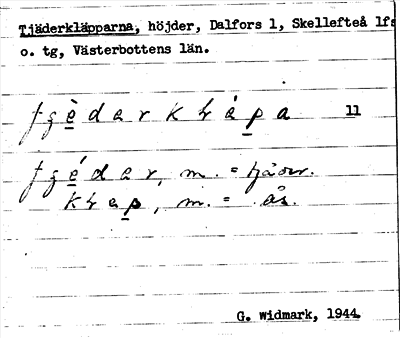 Tjäderkläpparna, höjder, Dalfors 1, Skellefteå lfs
o. tg, Västerbottens län.
11
m. = tjäder.
m. = ås.
G. Widmark, 1944.